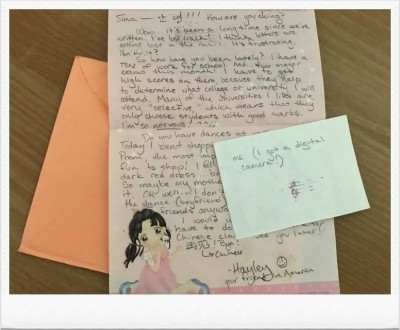 How are you doing?
Wow... it's been a long time since we've
written. I've lost track! I think letters are
getting lost in the mail. It's frustrating,
isn't it?
So how have you been lately? I have a
TON of work for school. And two major
exams this month! I have to get
high scores on them because they help
to determine what college or university I will
attend. Many of the universities I like are
very "selective," which means that they
only choose students with good marks.
I'm so nervous!
Do you have dances at
Today I went shopp
From the most imp
fun to shop! I fell
dark red dress...b
So maybe my mothe
it. Oh well... I don't
the dance (boyfriend
friends anyway
I would
have to do
Chinese class. See you later!
再见! Bye!
-Hayley
your friend in America
me (I got a digital
camera!)